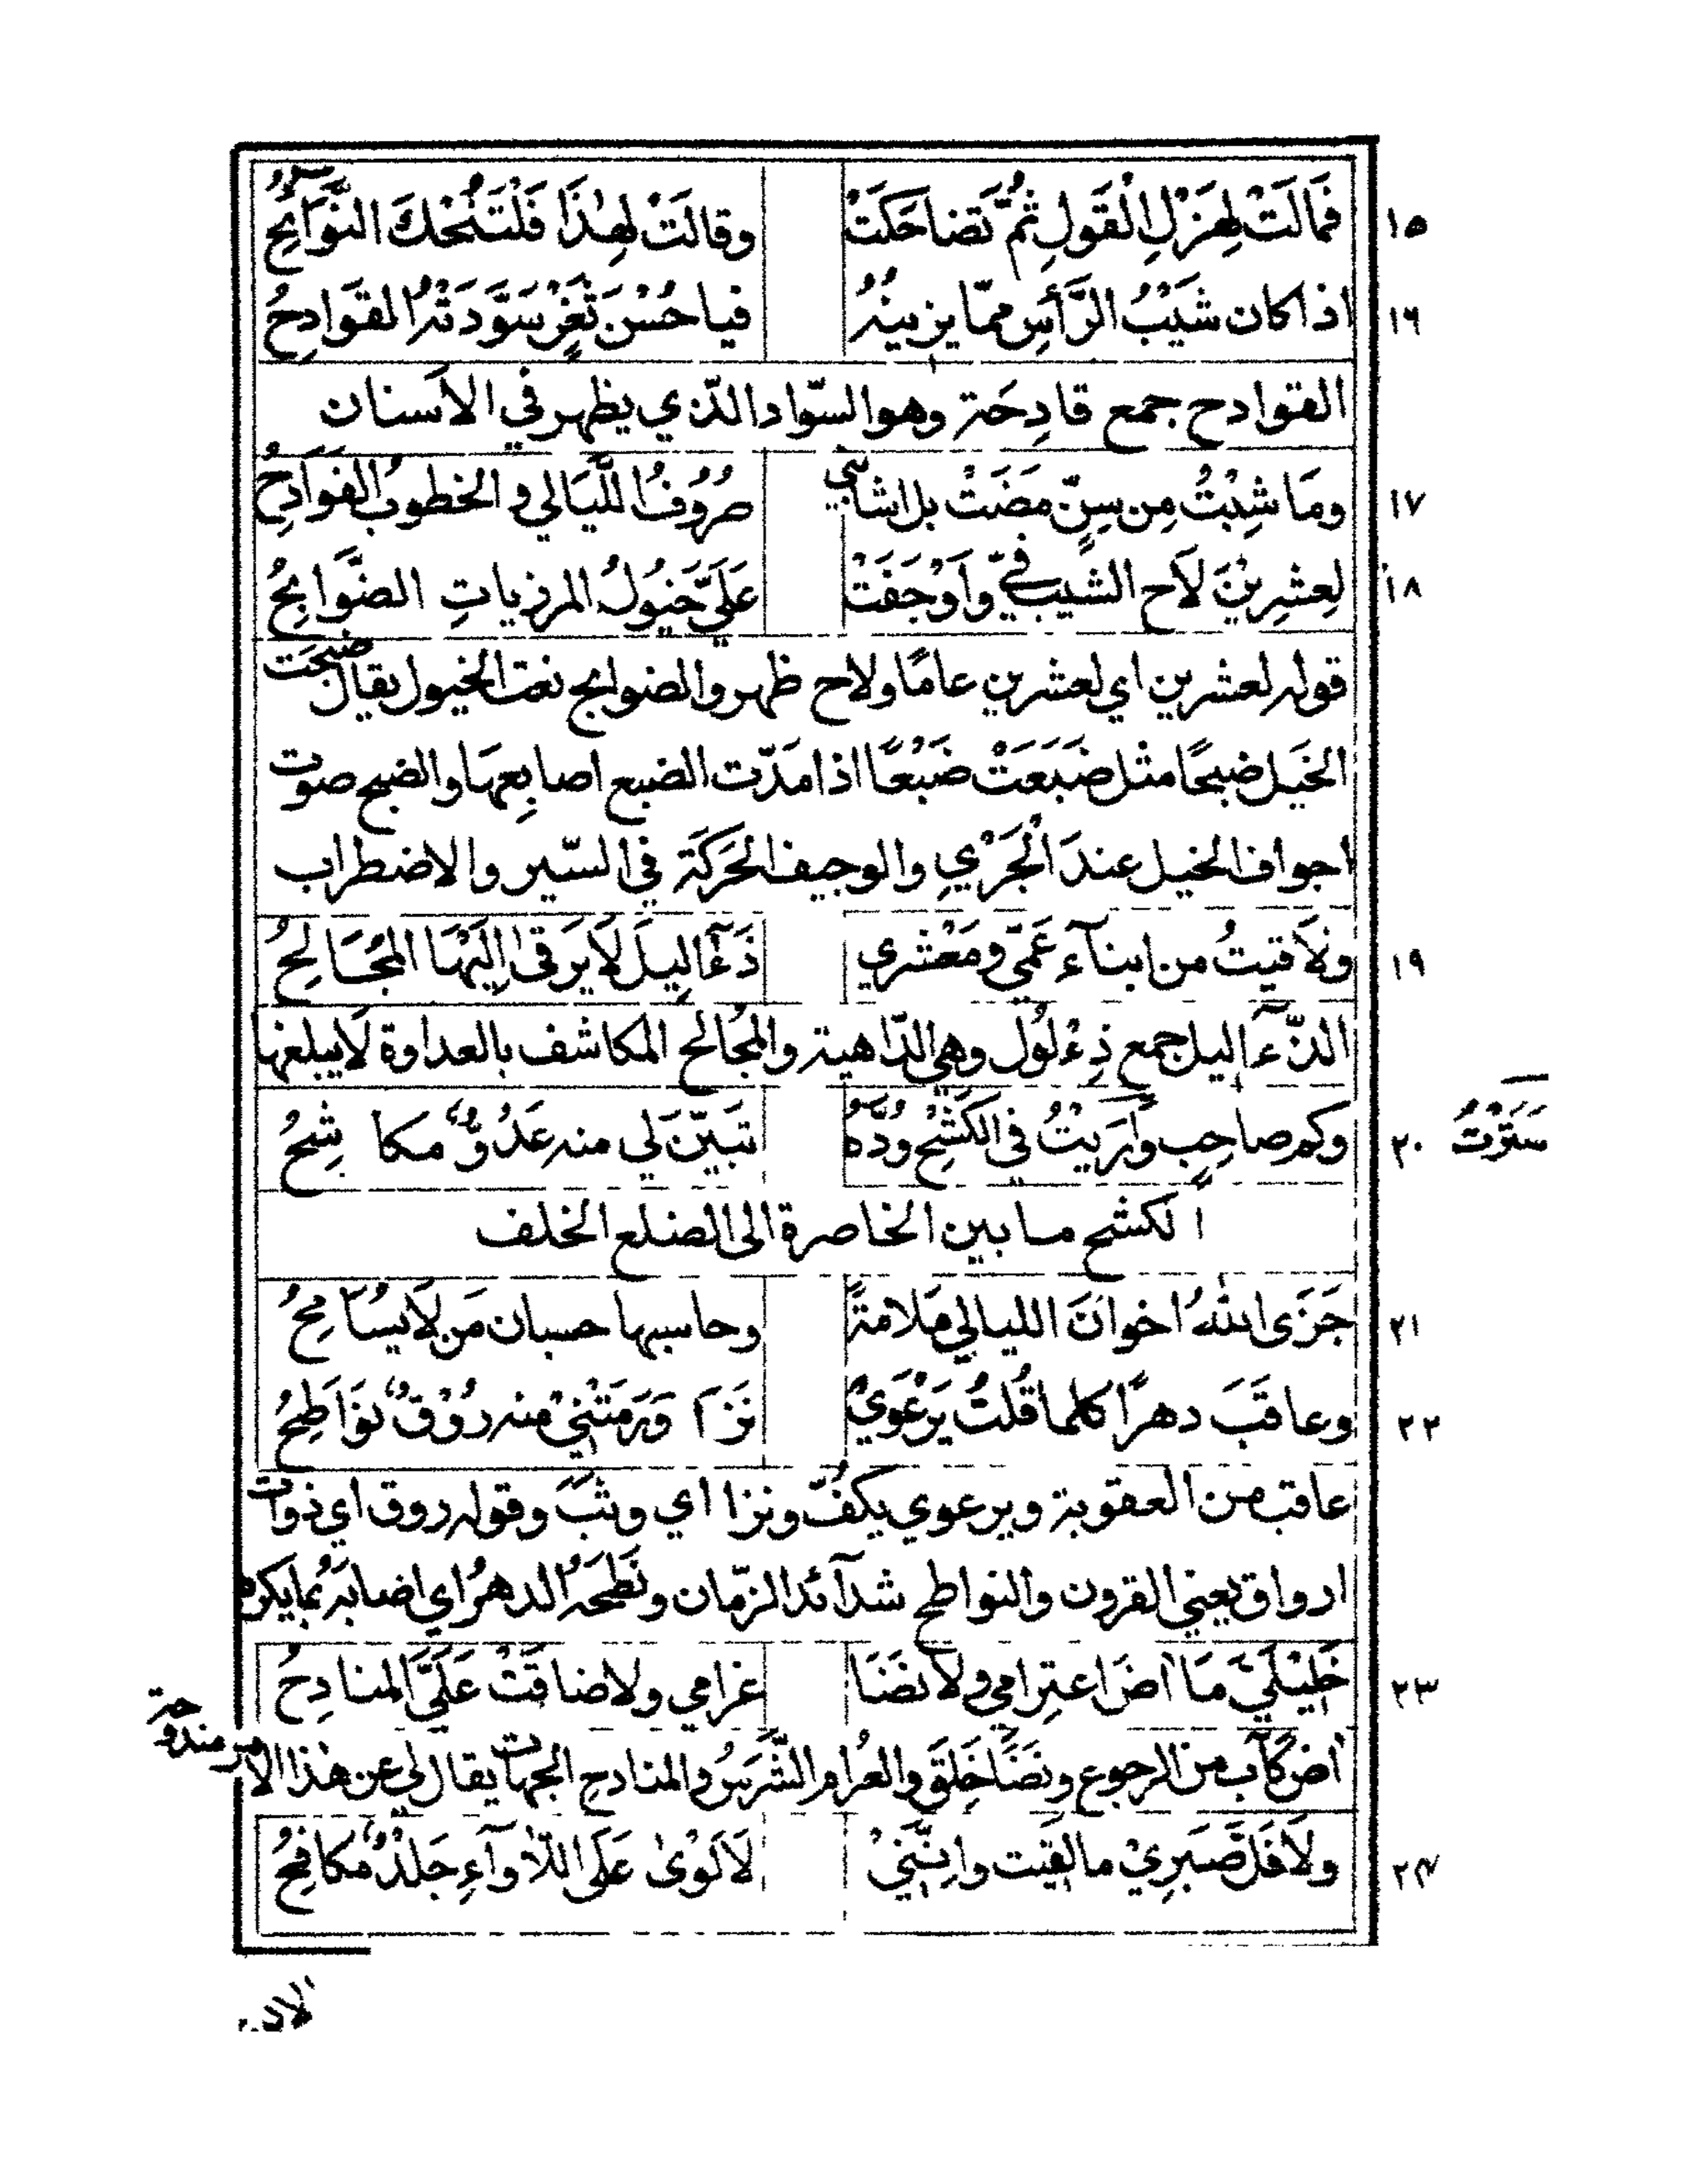 ١٥ فَمَالَتْ لِهَزْلِ الْقَولِ ثُمَّ تَضاحَكَتْ وقالَتْ لِهٰذَا فَلْتَنُحْكَ النَّوَآئِحُ
١٦ اذا كان شَيْبُ الرَّأسِ ممّا يزينُهُ فيا حُسْنَ ثَغْرٍ سَوَّدَتْهُ القَوَادِحُ
القوادح جمع قادِحَة وهو السّواد الّذي يظهر في الأسنان
١٧ ومَا شِبْتُ مِن سِنٍّ مَضَتْ بل اشابني صُرُوفُ اللَّيَالي و الخطوبُ الفَوَادِحُ
١٨ لِعشْرِيْنَ لَاحَ الشيبُ فيَّ وَأوْجَفَتْ عَلَيَّ خيُولُ المرزياتِ الضَّوَابِحُ
قوله لعشرين اي لعشرين عامًا ولاح ظهر والضوابح نعت الخيول يقال ضبحَت
الخَيل ضبحًا مثل ضَبَعَتْ ضَبْعًا اذا مَدّت الضبع اصابِعهَا والضبح صوت
اجواف الخيل عندَ الْجَرْيِ والوجيف الحَرَكَة في السّير والاضطراب
١٩ ولَاقَيتُ من ابنآء عَمّي ومَعْشري ذَءَآلِيلَ لَا يَرقىٰ إلَيْهَا المُجَالِحُ
الذّءَآليل جمع ذِءْلُول وهي الدّاهية والمُجالح المكاشف بالعداوة لَا يبلغها
٢٠ وكم صاحِبٍ وَارَيْتُ في الكَشْحِ وُدَّهُ تبَيّنَ لي منه عَدُوٌّ مكاشِحُ
سَتَرْتُ
الكشح ما بين الخاصرة الى الضلع الخلف
٢١ جَزَى اللهُ اخوانَ الليالي مَلامَةً وحاسبها حسبان مَن لَا يُسَامِحُ
٢٢ وعاقَبَ دهرًا كلما قُلتُ يَرْعَوِيْ نَزَا وَرَمَتْنِيْ منه رُوْقٌ نَوَاطِحُ
عاقب من العقوبة ويرعوي يكفّ ونزا اي وثبَ وقوله روق اي ذوات
ارواق يعني القرون والنواطح شدآئد الزّمان ونَطَحَهُ الدهرُ اي اصابَهُ بما يكره
٢٣ خَلِيْلَيَّ مَا آضَ اعتِرامي ولا نَضَا غرامي ولا ضاقَتْ عَلَيَّ المنادِحُ
آض كآب من الرجوع ونَضَا خَلِقَ والعُرام الشَّرَسُ والمنادح الجهات يقال لي عن هٰذا الأمر مندوحة
٢٤ ولَا فَلَّ صَبرِيْ ما لقيت وإنّنِيْ لَألوىٰ عَلَى اللّأوآءِ جَلْدٌ مكافحُ